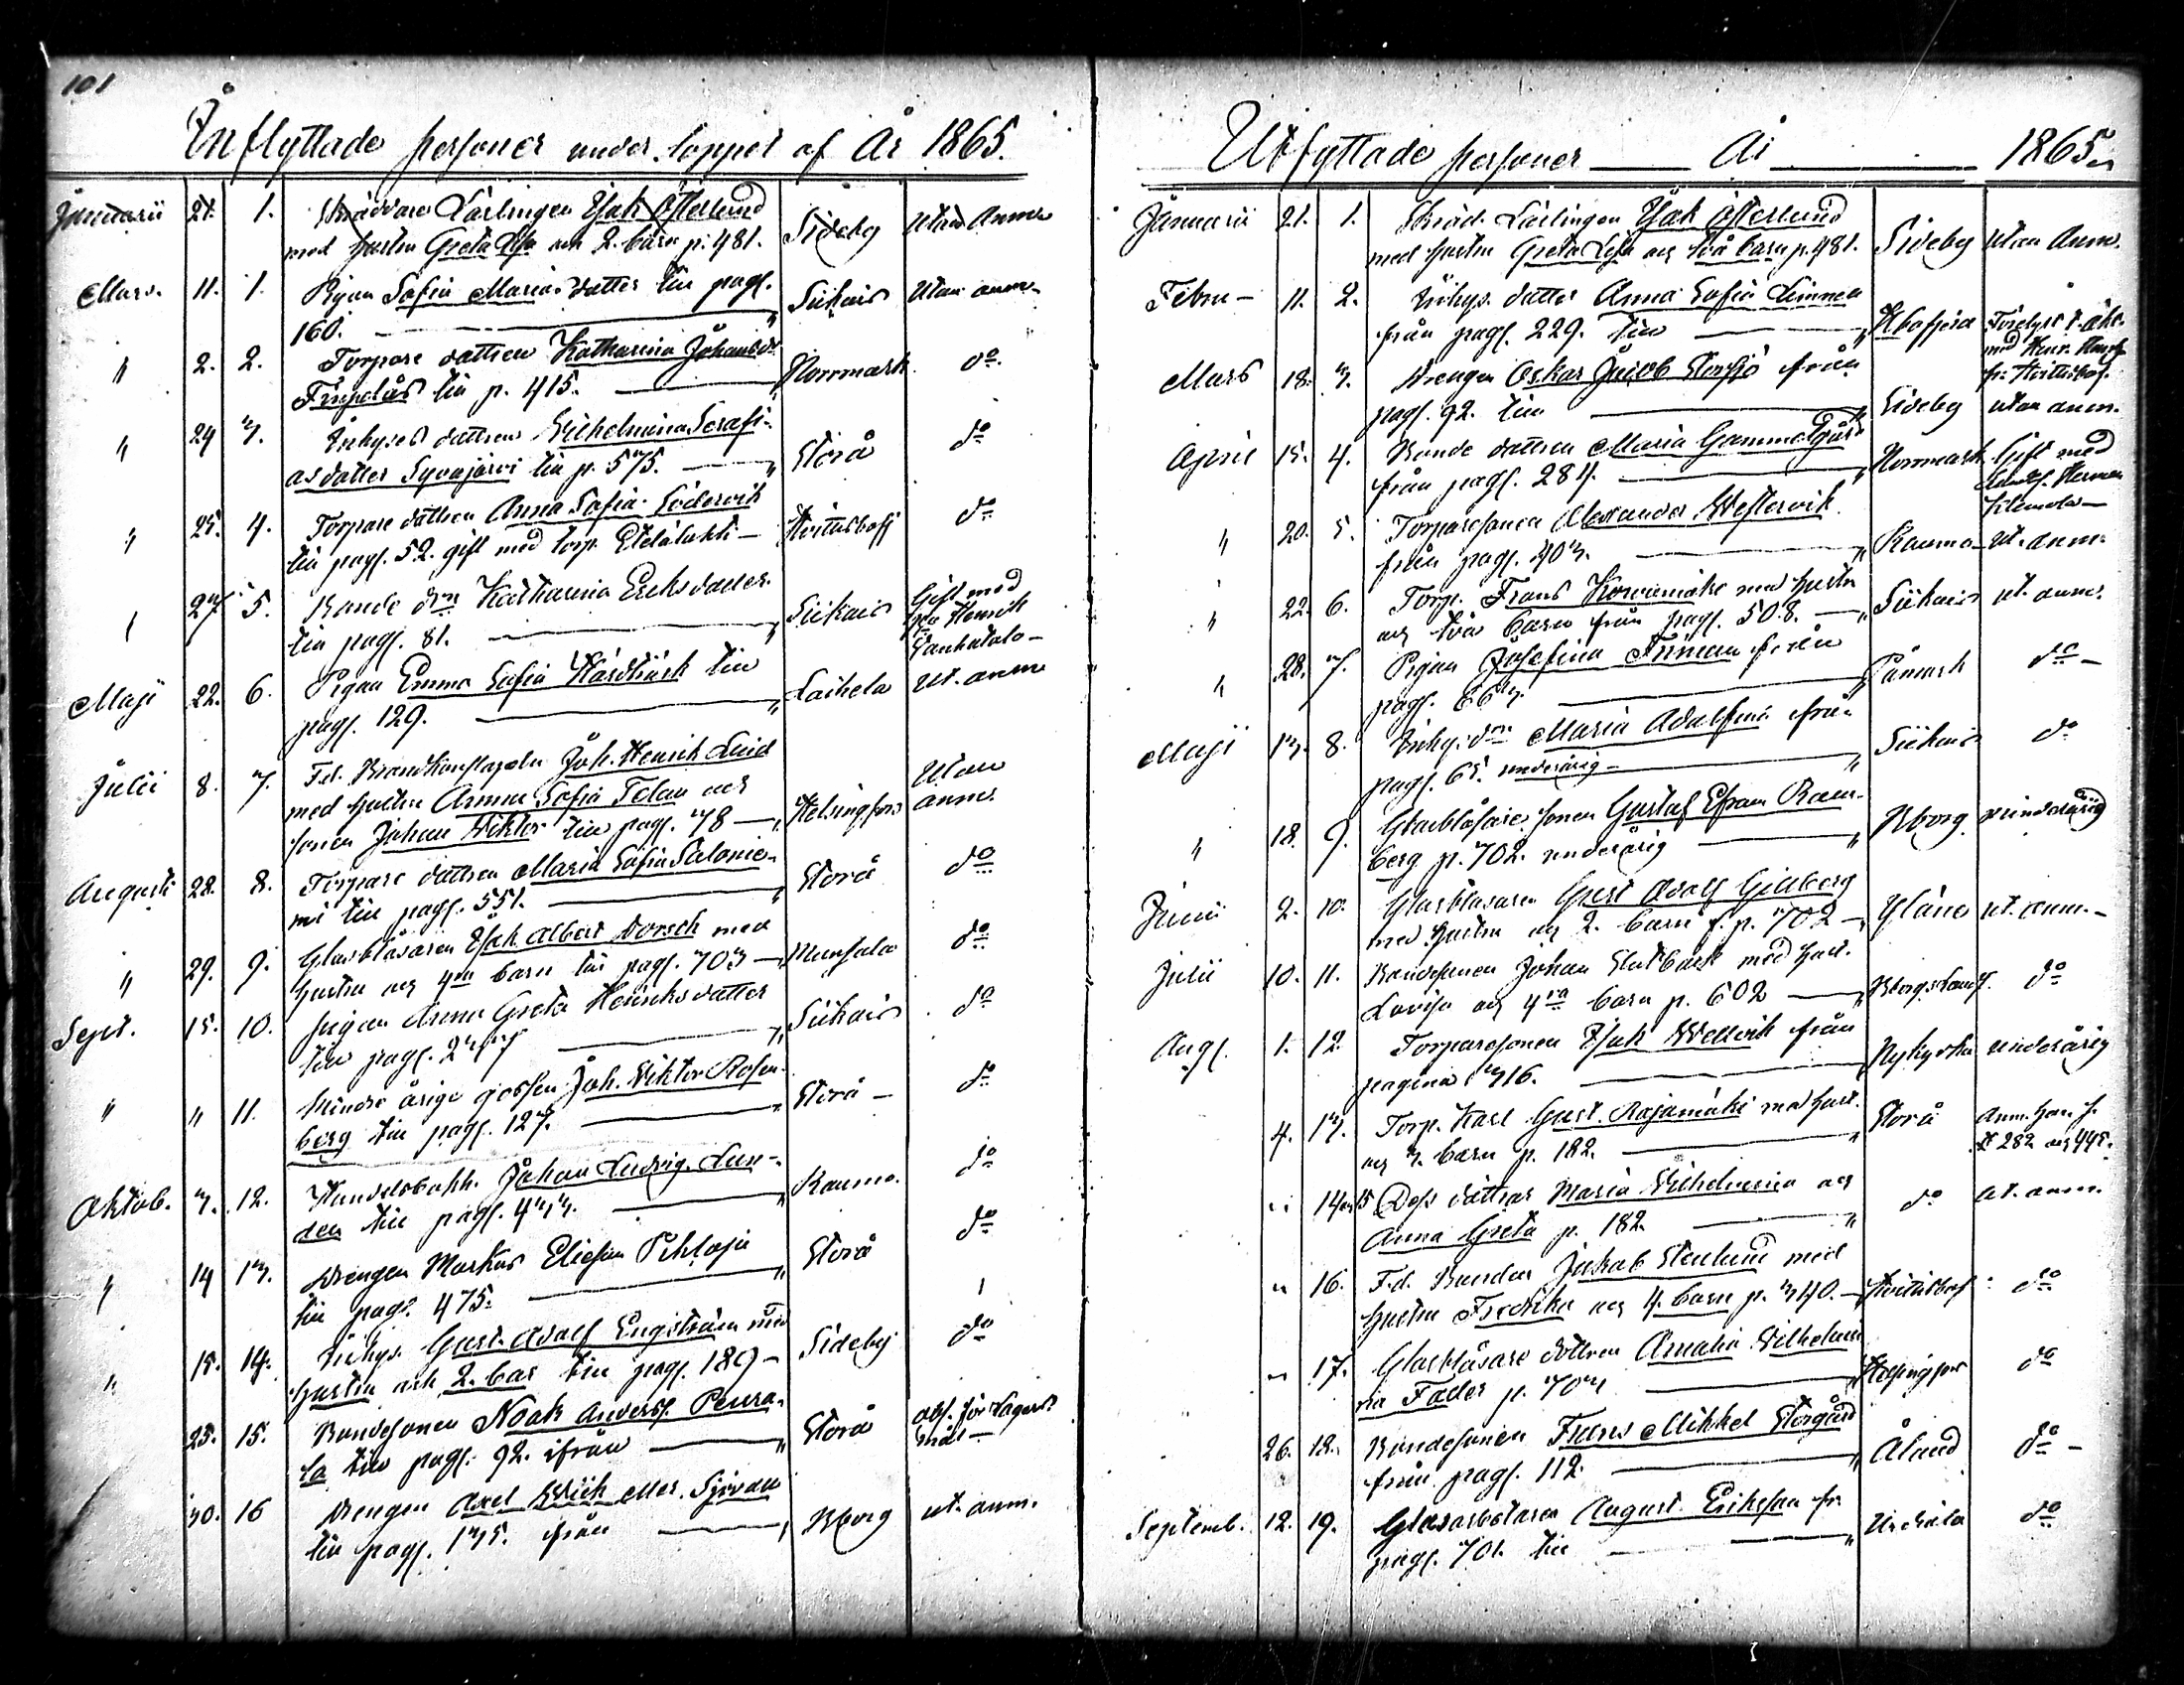 101
Inflyttade personer under loppet af År 1865.
Januarii 21. 1. Skräddare Lärlingen Isak Österlund
med hustru Greta Lisa och 2. barn p. 481. Sideby utan Anm.
Mars. 11. 1. Pigan Sofia Maria dotter till pag. Siikais utan anm.
160.
" 2. 2. Torpare dottren Katharina Johansdr
till p. 415. Norrmark do
" 24 3. Inhyses dottren Wilhelmina Serafi-
asdotter Syvajärvi till p. 575. Storå do
" 25. 4. Torpare dottren Anna Sofia Södervik
till pag. 52. gift med torp. Etelälahti Hvittisbof do
" 27 5. Bonde drn Katharina Eriksdotter
till pag. 81. Siikais Gift med
Henrik
Maji 22. 6. Pigan Emma Sofia till
pag. 129. Laihela ut. anm
Julii 8. 7. F.d. Joh. Henrik Lind
med hustru Anna Sofia och
sonen Johan Wiktor till pag. 78 Helsingfors Utan
anm.
Augusti 28. 8. Torpare dottren Maria Sofia Salonie-
mi till pag. 551. Storå do
" 29. 9. Glasblåsaren Isak Albert Dorsch med
hustru och 4ra barn till pag. 703 Munsala do
Sept. 15. 10. pigan Anna Greta Henriksdotter
till pag. 277 Siikais do
" " 11. Mindre årige gossen Joh. Viktor Rosen-
berg till pag. 127. Storå do
Oktob. 3. 12. Johan Ludvig Lin-
den till pag. 433. Raumo. do
" 14 13. Drengen Markus Eliesson Pihlaja
till pag. 475. Storå do
" 15. 14. Inhys. Gust. Adolf Engström med
hustru och 2. bar till pag. 189 Sideby do
25. 15. Bondesonen Noak Anderss. Peura-
la till pag. 92. ifrån Storå
30. 16 Drengen Axel eller Sjöman
till pag. 135. från Åborg ut. anm.
Utflyttade personer År 1865
Januarii 21. 1. Skräd. Lärlingen Isak Österlund
med hustru Greta Lisa och två barn p. 481. Sideby utan Anm.
Febru 11. 2. Inhys. dotter Anna Sofia
från pag. 229. till
Mars 18. 3. Drengen Oskar Jacob Storsjö från
pag. 92. till Sideby utan anm.
April 15. 4. Bonde dottren Maria Gammelgård
från pag. 284. Norrmark Gift med
Herman
20. 5. Torparesonen Alexander Westervik
från pag. 403. Raumo ut. anm.
22. 6. Torp. Frans med hustru
och två barn från pag. 508. Siikais ut. anm.
28. 7. Pigan Josefina från
pag. 663. Påmark do
Maji 13. 8. Inhy. drn Maria Adolfina från
pag. 65. underårig Siikais do
18. 9. Glasblåsare sonen Gustaf Efram Ram-
berg p. 702. underårig Åborg minderårig
Junii 2. 10. Glasblåsaren Gust Adolf Gidberg
med hustru och 2. barn f. p. 702 Yläne ut. anm.
Julii 10. 11. Bondesonen Johan med hust.
Lovisa och 4ra barn p. 602 do
Aug. 1. 12. Torparesonen Isak från
pagina 316. Nykyrka underårig
4. 13. Torp. Karl Gust. Rajamäki med hust.
och 3. barn p. 182. Storå Anm.
282 och 445.
14 och 15 Dess döttrar Maria Wilhelmina och
Anna Greta p. 182. do ut. anm.
16. F.d. Bonden Jakob Stenlund med
hustru Fredrika och 4. barn p. 340. Hvittisbof do
17. Glasblåsare dottren Amalia Wilhelmi-
na Fader p. 703 Helsingfor do
26. 18. Bondesonen Frans Mikkel Storgård
från pag. 112. Åland do
Septemb. 12. 19. August Eriksson fr.
pag. 701. till Urdiala do